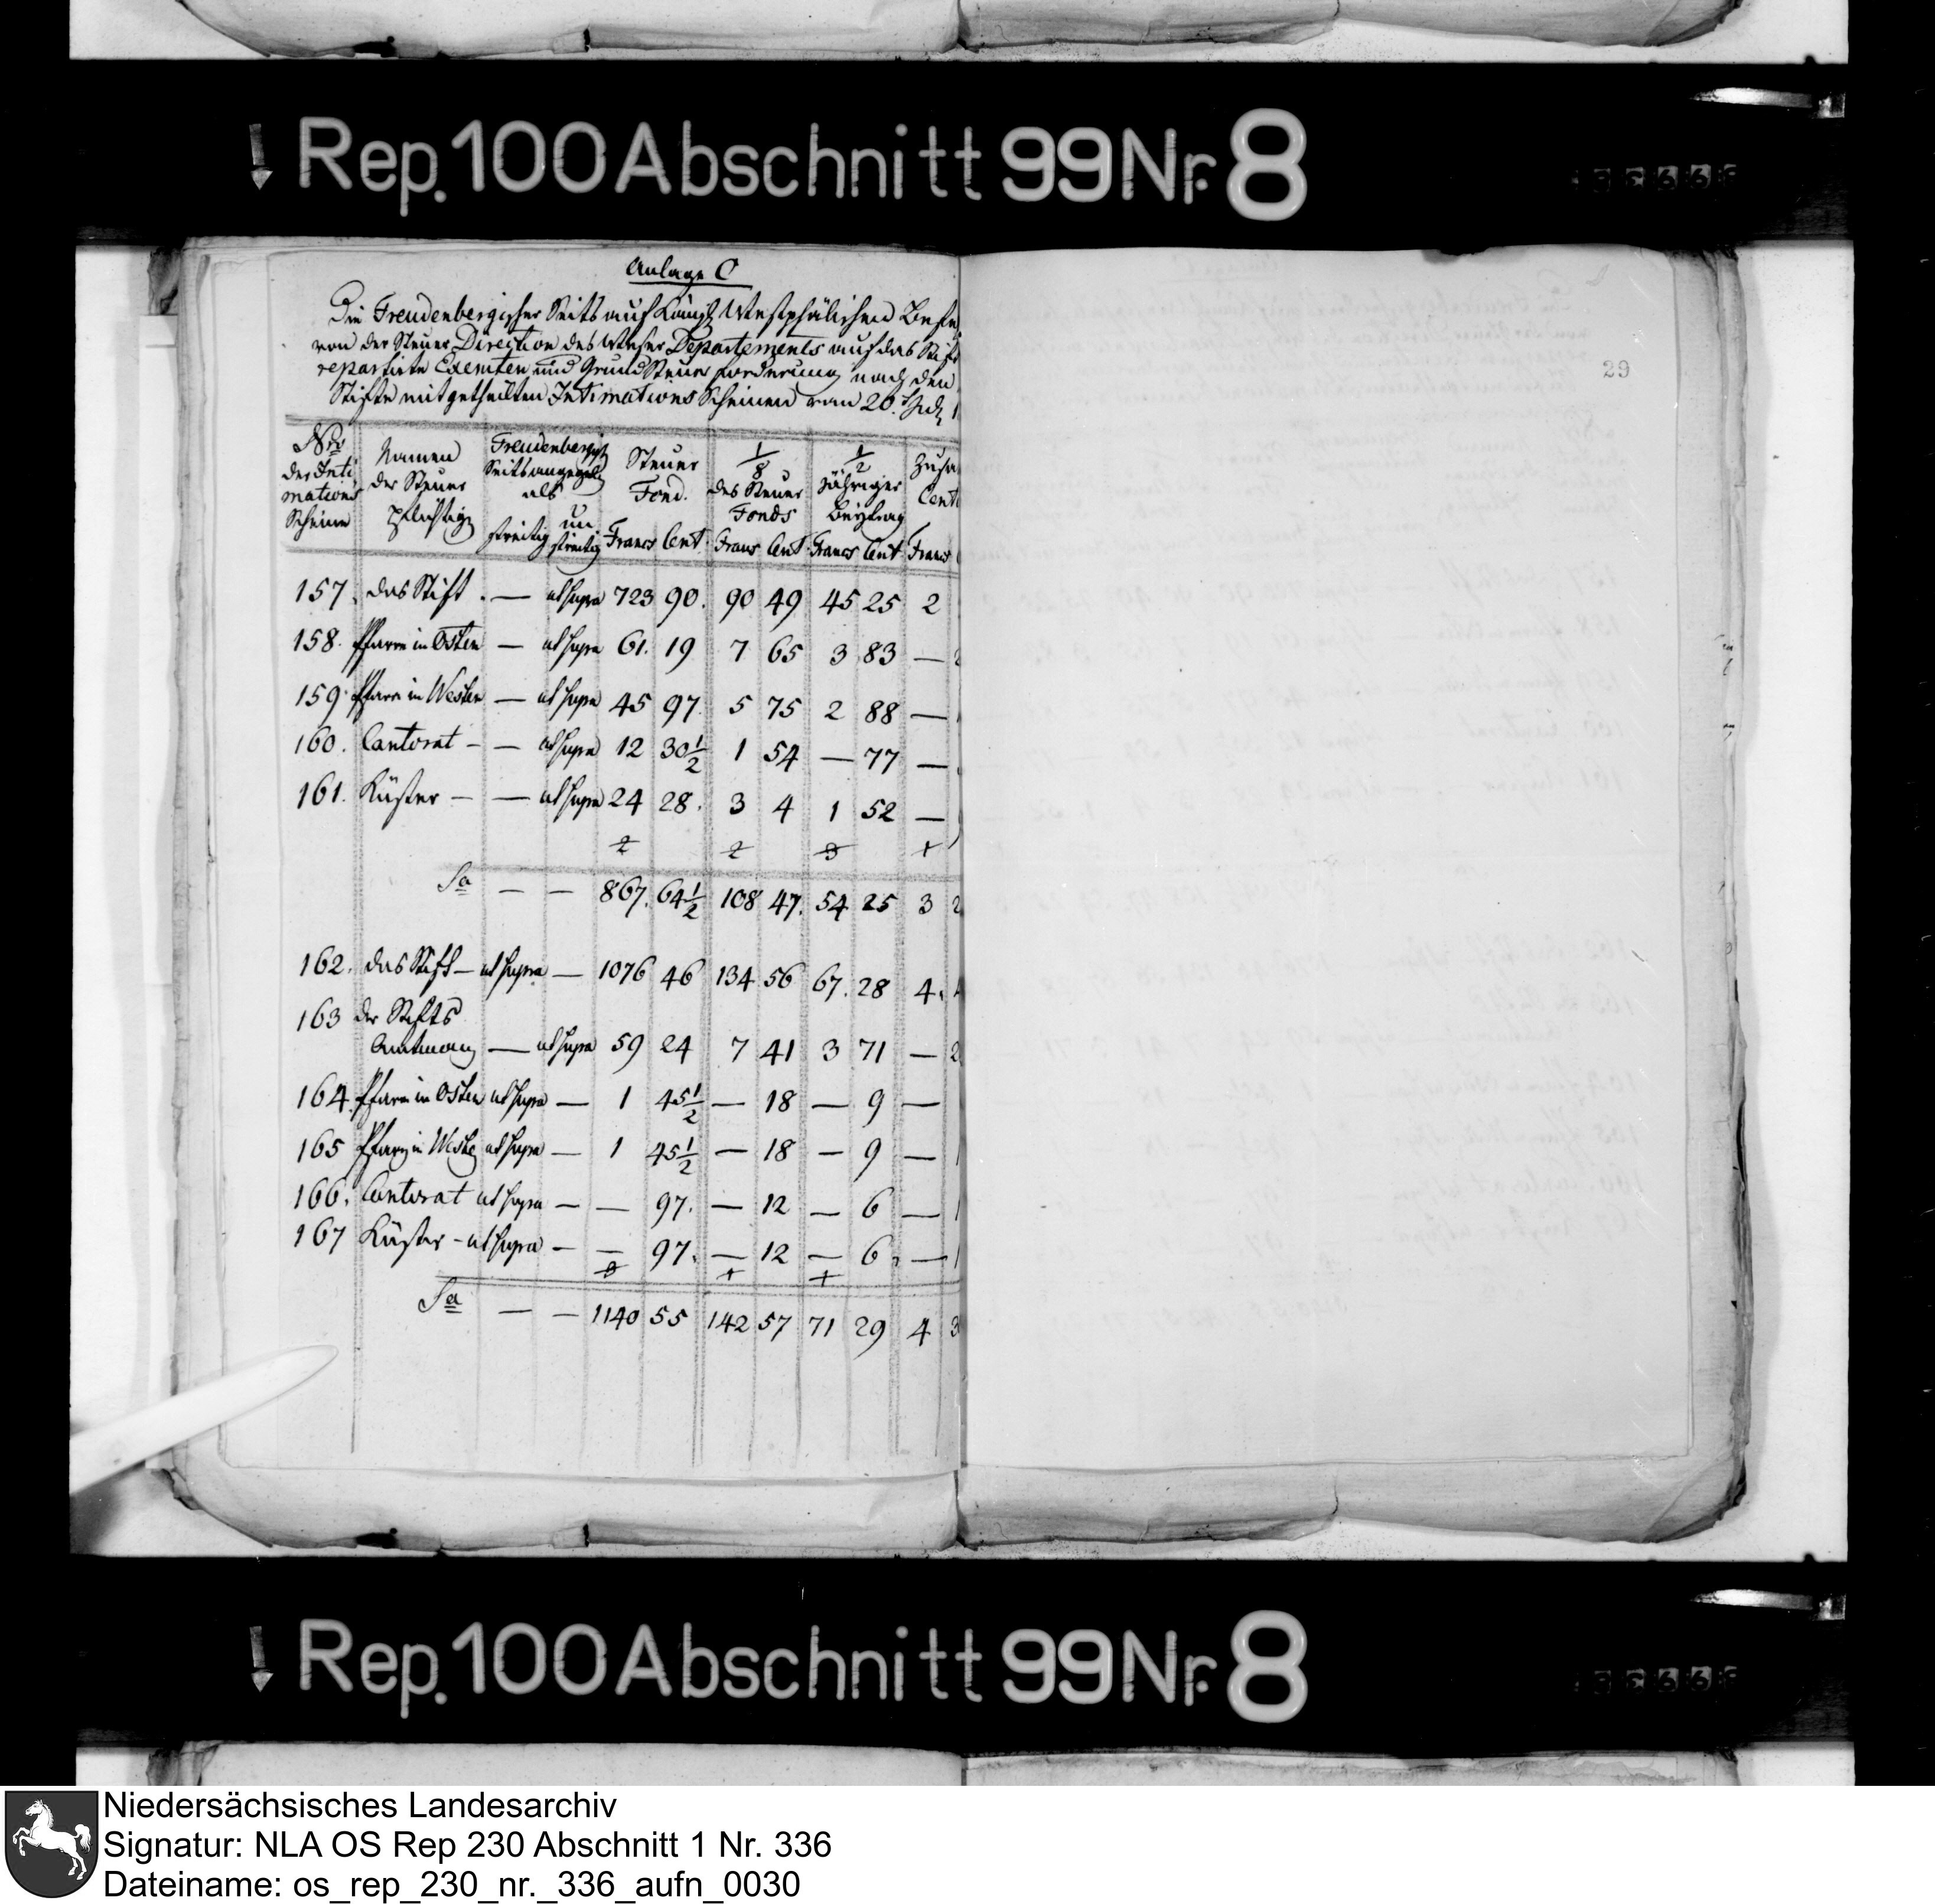 Rep. 100 Abschnitt 99 Nr. 8
Anlage C
Die Freudenbergischer Seits auf Königl Westphälischen Befe
von der Steuer Direction des Weser Departements auf das Stift
repartirte Exemten und GrundSteuer forderung nach den
Stifte mitgetheilten Intimations Scheinen vom 20. July 1
29
Nro der Intimations Scheine | Namen der Steuer pflichtige | Freudenbergs. Seits angegeb. als streitig | unstreitig | Steuer Fond. Francs Cent. | 1/8 des Steuer Fonds Francs Cent. | 1/2 Jähriger Beytrag Francs Cent | Zusa Cent Francs
157. das Stift. — ut supra 723 90. 90 49 45 25 2
158. Pfarre in Osten — ut supra 61. 19 7 65 3 83 —
159. Pfarre in Westen — ut supra 45 97. 5 75 2 88 —
160. Cantorat - — ut supra 12 30 1/2 1 54 — 77 —
161. Küster - — ut supra 24 28. 3 4 1 52 —
2 2 3 1
Sa — — 867. 64 1/2 108 47. 54 25 3 2
162. das Stift - ut supra — 1076 46 134 56 67. 28 4.
163 der Stifts
Amtmann — ut supra 59 24 7 41 3 71 — 2
164. Pfarre in Osten ut supra — 1 45 1/2 — 18 — 9 —
165 Pfarre in Weste ut supra — 1 45 1/2 — 18 — 9 —
166. Cantorat ut supra — — 97. — 12 — 6 —
167 Küster - ut supra — — 97. — 12 — 6. —
3 1 1
Sa — — 1140 55 142 57 71 29 4 3
Rep. 100 Abschnitt 99 Nr. 8
Niedersächsisches Landesarchiv
Signatur: NLA OS Rep 230 Abschnitt 1 Nr. 336
Dateiname: os_rep_230_nr._336_aufn_0030